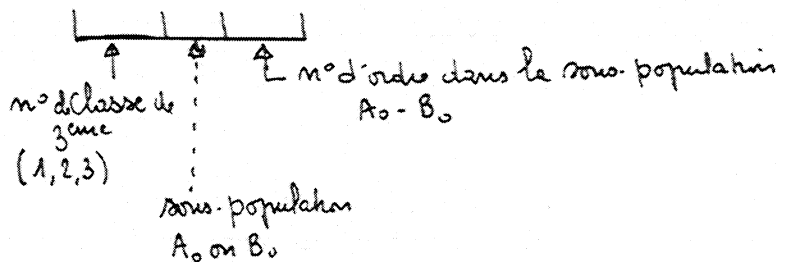 n° d'ordre dans la sous-population
A₀ - B₀
n° de classe de
3ème
(1, 2, 3)
sous-population
A₀ ou B₀